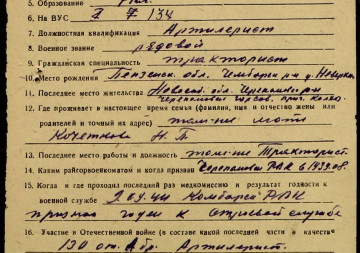 5. Образование
6. На ВУС 134
7. Должностная квалификация Артилерист
8. Военное звание рядовой
9. Гражданская специальность тракторист
10. Место рождения Пензенск. обл.
11. Последнее место жительства Новосиб. обл. Черепановский
12. Где проживает в настоящее время семья (фамилия, имя и отчество жены или
родителей и точный их адрес) там-же мать
Кочеткова Н. П
13. Последнее место работы и должность там-же Тракторист
14. Каким райгорвоенкоматом и когда призван Черепановск РВК в 1939.08.
15. Когда и где проходил последний раз медкомиссию и результат годности к
военной службе РВК
признан годен к строевой службе
16. Участие в Отечественной войне (в составе какой последней части и качестве
130 от. Абр. Артилерист.